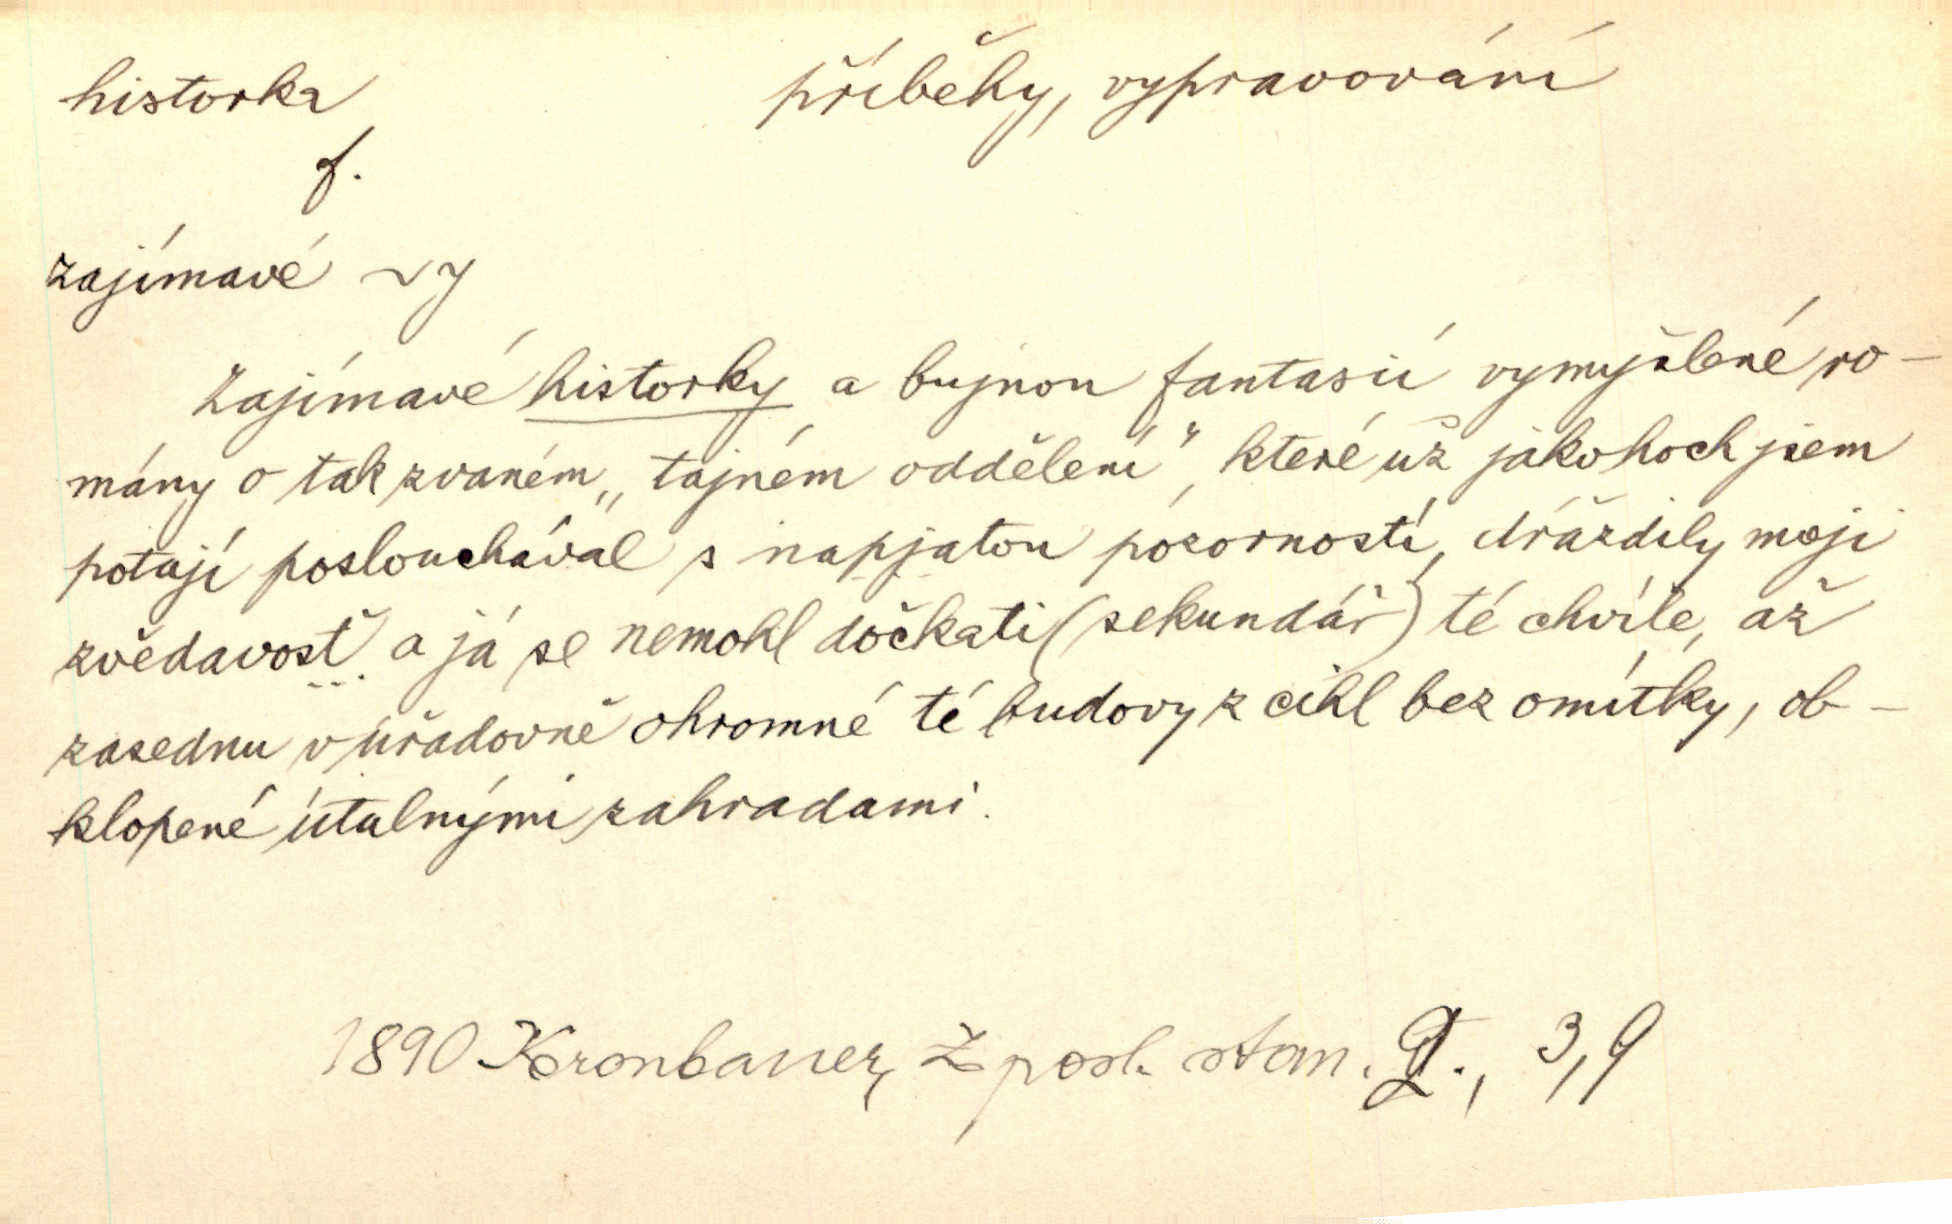 historka příběhy, vypravování
f.
zajímavé ~y
Zajímavé historky a bujnou fantasií vymyšlené ro-
mány o tak zvaném „tajném oddělení", které už jako hoch jsem
potají poslouchával s napjatou pozorností, dráždily moji
zvědavosť a já se nemohl dočkati (sekundář) té chvíle, až
zasednu v úřadovně ohromné té budovy z cihl bez omítky, ob-
klopené útulnými zahradami.
1890 Kronbauer, Z posl. stan. I., 3, 9